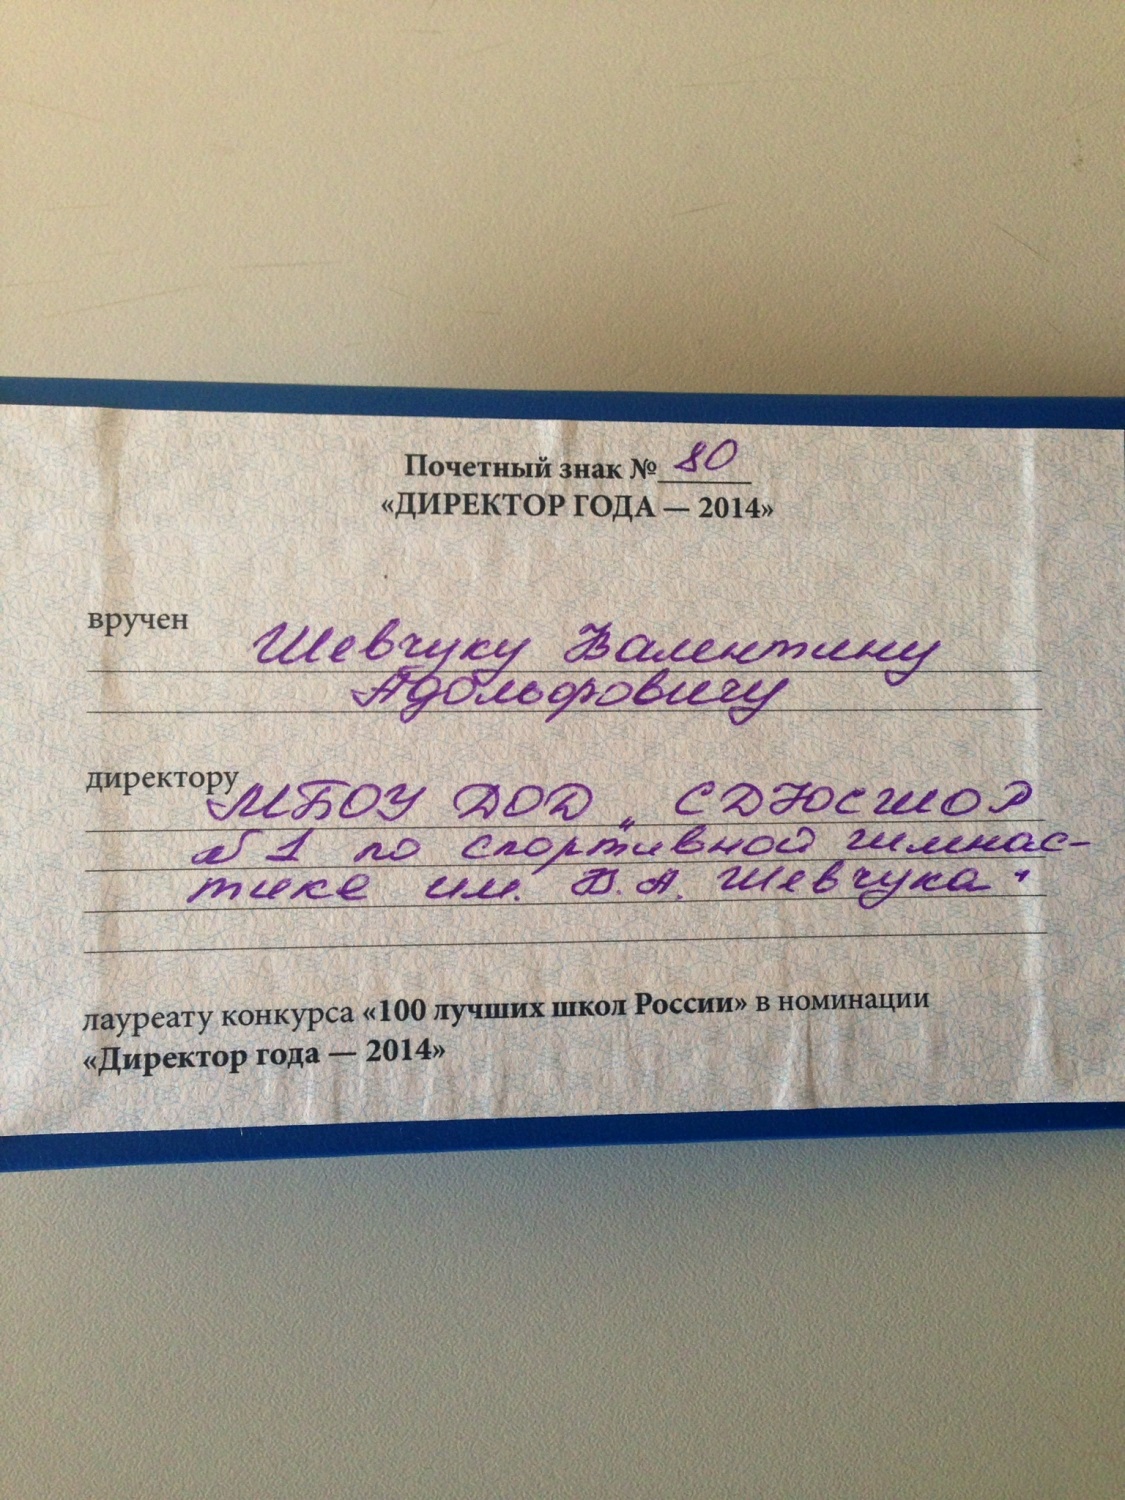 Почетный знак № 80
«ДИРЕКТОР ГОДА — 2014»
вручен
Шевчуку Валентину
Адольфовичу
директору
МБОУ ДОД „ СДЮСШОР
№ 1 по спортивной гимнас-
тике им. В. А. Шевчука "
лауреату конкурса «100 лучших школ России» в номинации
«Директор года — 2014»